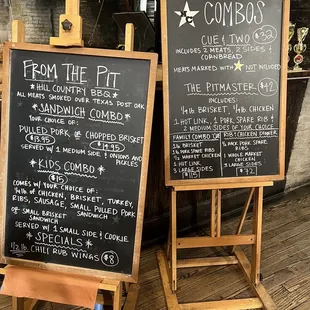 FROM THE PIT
HILL COUNTRY BBQ
ALL MEATS SMOKED OVER TEXAS POST OAK
SANDWICH COMBO
YOUR CHOICE OF:
PULLED PORK OR CHOPPED BRISKET
$13.95 $14.95
SERVED W/ 1 MEDIUM SIDE & ONIONS AND
PICKLES
KIDS COMBO
$15
COMES W/ YOUR CHOICE OF:
1/4 OF CHICKEN, BRISKET, TURKEY,
RIBS, SAUSAGE, SMALL PULLED PORK
SANDWICH
OR SMALL BRISKET
SANDWICH
SERVED W/ 1 SMALL SIDE & COOKIE
SPECIALS
1/2 LB. CHILI RUB WINGS $8
COMBOS
CUE AND TWO $32
INCLUDES 2 MEATS, 2 SIDES
& CORNBREAD
MEATS MARKED WITH NOT INCLUDED
THE PITMASTER $42
INCLUDES:
1/4 LB BRISKET, 1/4 CHICKEN
1 HOT LINK, 1 PORK SPARE RIB &
2 MEDIUM SIDES OF YOUR CHOICE
FAMILY COMBO FOR
1 LB BRISKET
1 LB PORK SPARE RIBS
1/2 MARKET CHICKEN
1 HOT LINK
2 LARGE SIDES
$115
RIB & CHICKEN DINNER
1 WHOLE MARKET
CHICKEN
2 LARGE SIDES
$72